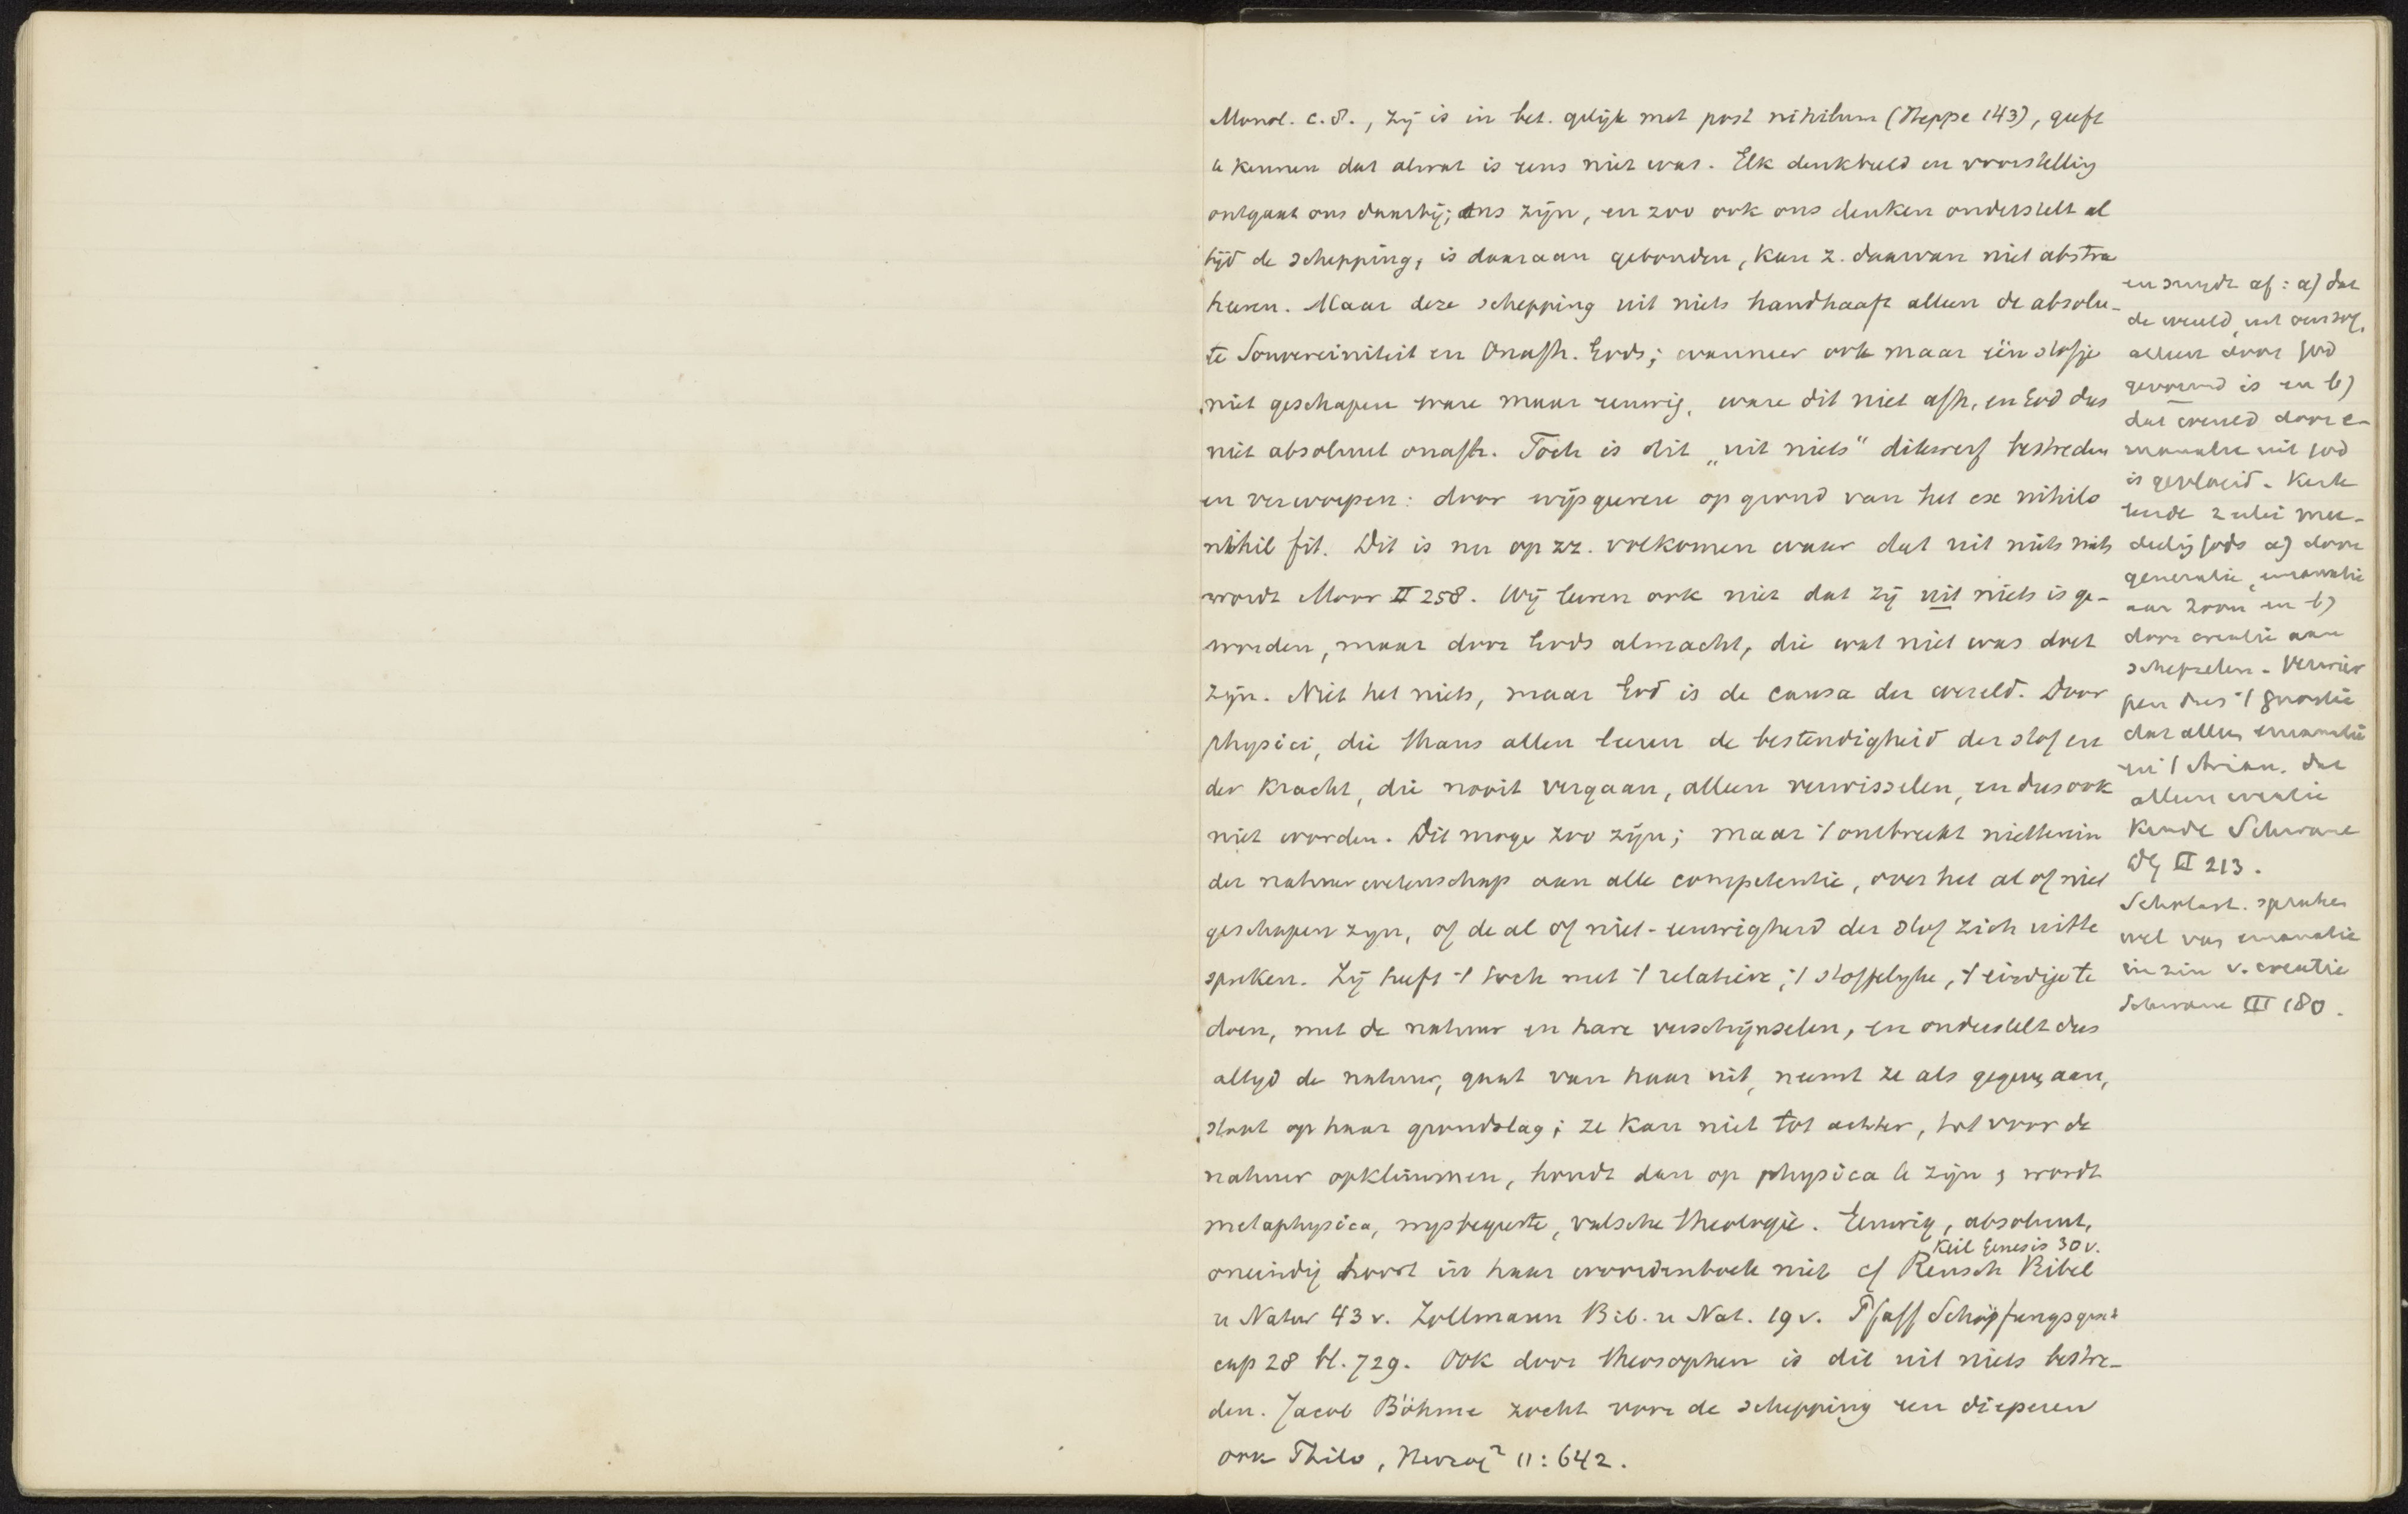 Monol. c. 8., zij is in bet. gelijk met post nihilum (Heppe 143), geeft
te kennen dat alwat is eens niet was. Elk denkbeeld en voorstelling
ontgaat ons daarbij; ons zijn, en zoo ook ons denken onderstelt al
tijd de schepping, is daaraan gebonden, kan z. daarvan niet abstra
heeren. Maar deze schepping uit niets handhaaft alleen de absolu-
te Souvereiniteit en Onafh. Gods; wanneer ook maar één stofje
niet geschapen ware maar eeuwig, ware dit niet afh, en God dus
niet absoluut onafh. Toch is dit „uit niets" dikwerf bestreden
en verworpen: door wijsgeeren op grond van het ex nihilo
nihil fit. Dit is nu op zz. volkomen waar dat uit niets niets
wordt Moor II 258. Wij leeren ook niet dat zij uit niets is ge-
worden, maar door Gods almacht, die wat niet was doet
zijn. Niet het niets, maar God is de causa der wereld. Door
physici, die thans allen leeren de bestendigheid der stof en
der kracht, die nooit vergaan, alleen verwisselen, en dus ook
niet worden. Dit moge zoo zijn; maar 't ontbreekt niettemin
der natuurwetenschap aan alle competentie, over het al of niet
geschapen zyn, of de al of niet-eeuwigheid der stof zich uit te
spreken. Zij heeft 't toch met 't relatieve, 't stoffelyke, 't eindige te
doen, met de natuur en hare verschijnselen, en onderstelt dus
altyd de natuur, gaat van haar uit, neemt ze als gegeven aan,
staat op haar grondslag; ze kan niet tot achter, tot voor de
natuur opklimmen, houdt dan op physica te zijn, wordt
metaphysica, wysbegeerte, valsche theologie. Eeuwig, absoluut,
oneindig hoort in haar woordenboek niet cf Reusch Bibel
Keil Genesis 30 v.
u Natur 43 v. Zollmann Bib. u Nat. 19 v. Pfaff Schöpfungsgesch
cap 28 bl. 729. Ook door theosophen is dit uit niets bestre-
den. Jacob Böhme zocht voor de schepping een dieperen
ook Thilo, Herzog² 11: 642.
en snydt af: a) dat
de wereld uit
alleen door God
gevormd is en b)
dat wereld door e-
manatie uit God
is gevloeid. Kerk
leerde 2 erlei mee-
deeling Gods a) door
generatie, emanatie
aan Zoon en b)
door creatie aan
schepselen. Verwier
pen dus 't gnostie
dat alles emanatie
en 't Arian. dat
alleen creatie
kende Schwane
DG II 213.
Scholast. spraken
wel van emanatie
in zin v. creatie
Schwane III 180.